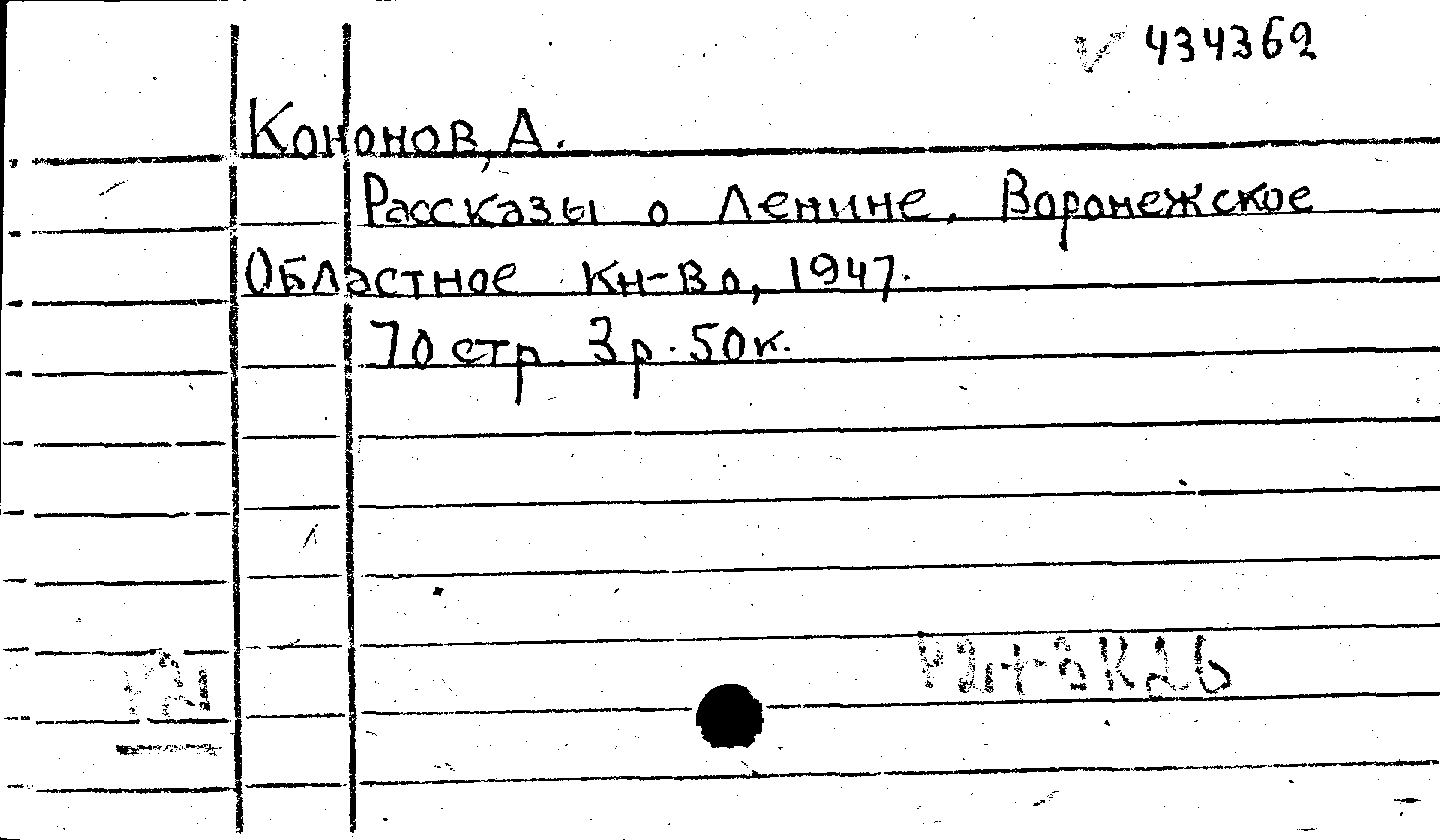 434362
Кононов, А.
Рассказы о Ленине. Воронежское
Областное кн-во, 1947.
70 стр. 3р.50к.